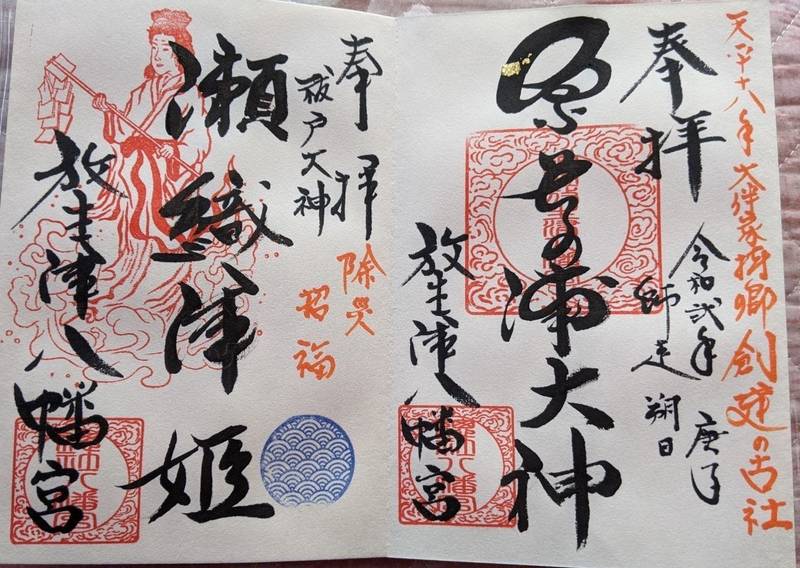 天平十八年大伴家持卿創建の古社
奉拝
令和弐年 庚子
師走 朔日
奈呉の浦大神
放生津八幡宮
奉拝
祓戸大神
除災
招福
瀬織津姫
放生津八幡宮